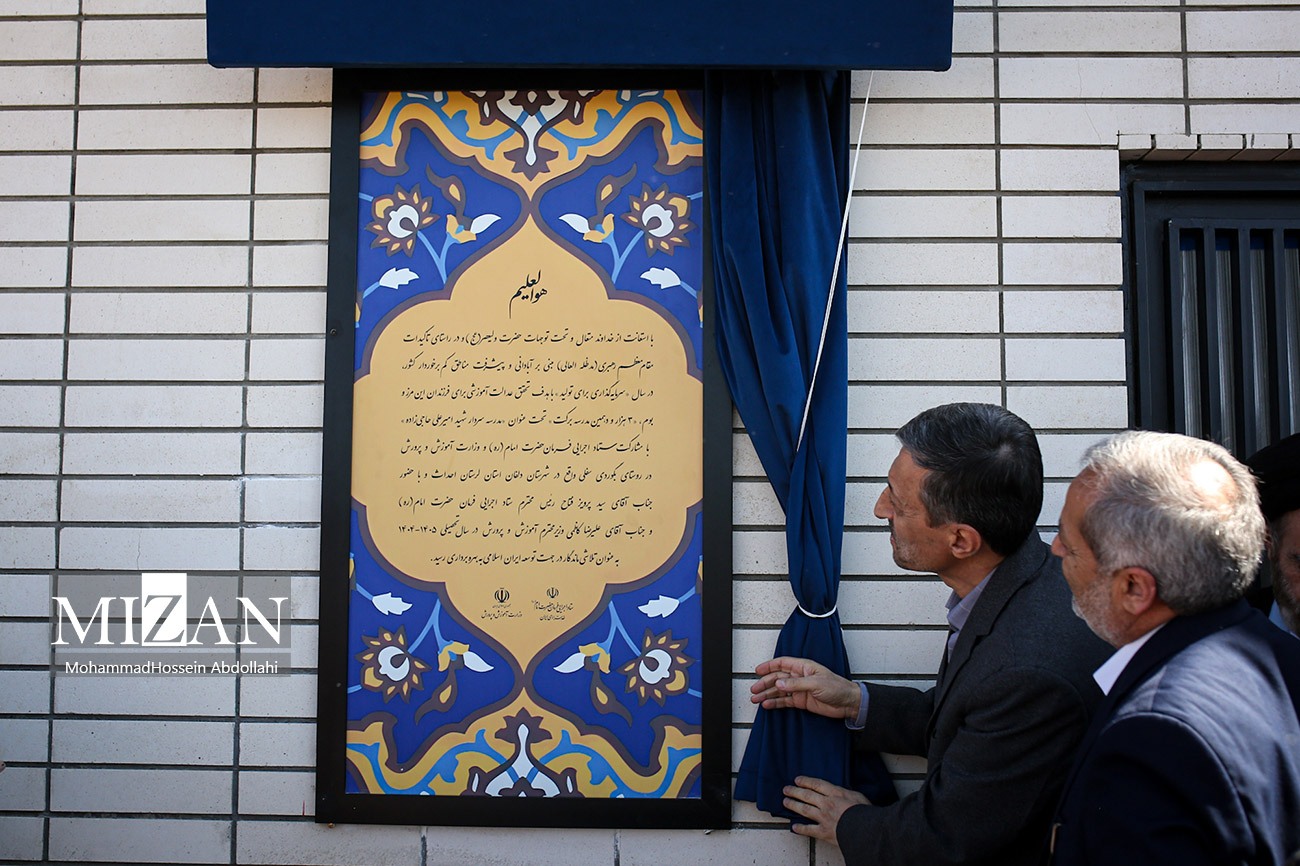 هوالعلیم
با استعانت از خداوند متعال و تحت توجهات حضرت ولیعصر(عج) و در راستای تأکیدات
مقام معظم رهبری (مدظله العالی) مبنی بر آبادانی و پیشرفت مناطق کم برخوردار کشور،
در سال «سرمایه‌گذاری برای تولید» با هدف تحقق عدالت آموزشی برای فرزندان این مرز و
بوم، «۳ هزار و دهمین مدرسه برکت» تحت عنوان «مدرسه سردار شهید امیرعلی حاجی‌زاده»
با مشارکت ستاد اجرایی فرمان حضرت امام (ره) و وزارت آموزش و پرورش
در روستای یگوردی سفلی واقع در شهرستان دلفان استان لرستان احداث و با حضور
جناب آقای سید پرویز فتاح رئیس محترم ستاد اجرایی فرمان حضرت امام (ره)
و جناب آقای علیرضا کاظمی وزیر محترم آموزش و پرورش در سال تحصیلی ۱۴۰۵-۱۴۰۴
به عنوان تلاشی ماندگار در جهت توسعه ایران اسلامی به بهره برداری رسید.
وزارت آموزش و پرورش
MIZAN
MohammadHossein Abdollahi